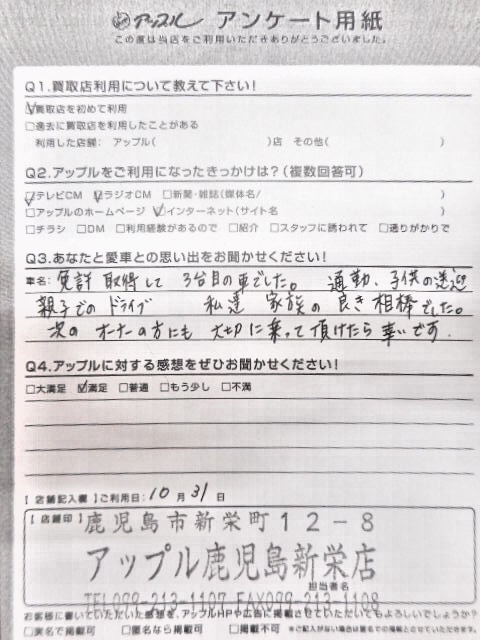 アップル アンケート用紙
この度は当店をご利用いただきありがとうございました。
Q1.買取店利用について教えて下さい!
☑買取店を初めて利用
□過去に買取店を利用したことがある
利用した店舗: アップル( )店 その他( )
Q2.アップルをご利用になったきっかけは?(複数回答可)
☑テレビCM ☑ラジオCM □新聞・雑誌(媒体名/ )
□アップルのホームページ ☑インターネット(サイト名 )
□チラシ □DM □利用経験があるので □紹介 □スタッフに誘われて □通りがかりで
Q3.あなたと愛車との思い出をお聞かせください!
車名: 免許取得して 3台目の車でした。 通勤、子供の送迎
親子でのドライブ 私達 家族の良き相棒でした。
次のオーナーの方にも 大切に乗って頂けたら幸いです.
Q4.アップルに対する感想をぜひお聞かせください!
□大満足 ☑満足 □普通 □もう少し □不満
【店舗記入欄】ご利用日: 10月31日
【店舗印】 鹿児島市新栄町12-8
アップル鹿児島新栄店
担当者名
TEL099-213-1107 FAX099-213-1108
お客様に書いていただいた感想を、アップルHPや広告に掲載させていただいてもよろしいでしょうか?
□実名で掲載可 □匿名なら掲載可 □掲載不可 ※ご記入がない場合は匿名での掲載とさせていただきます。